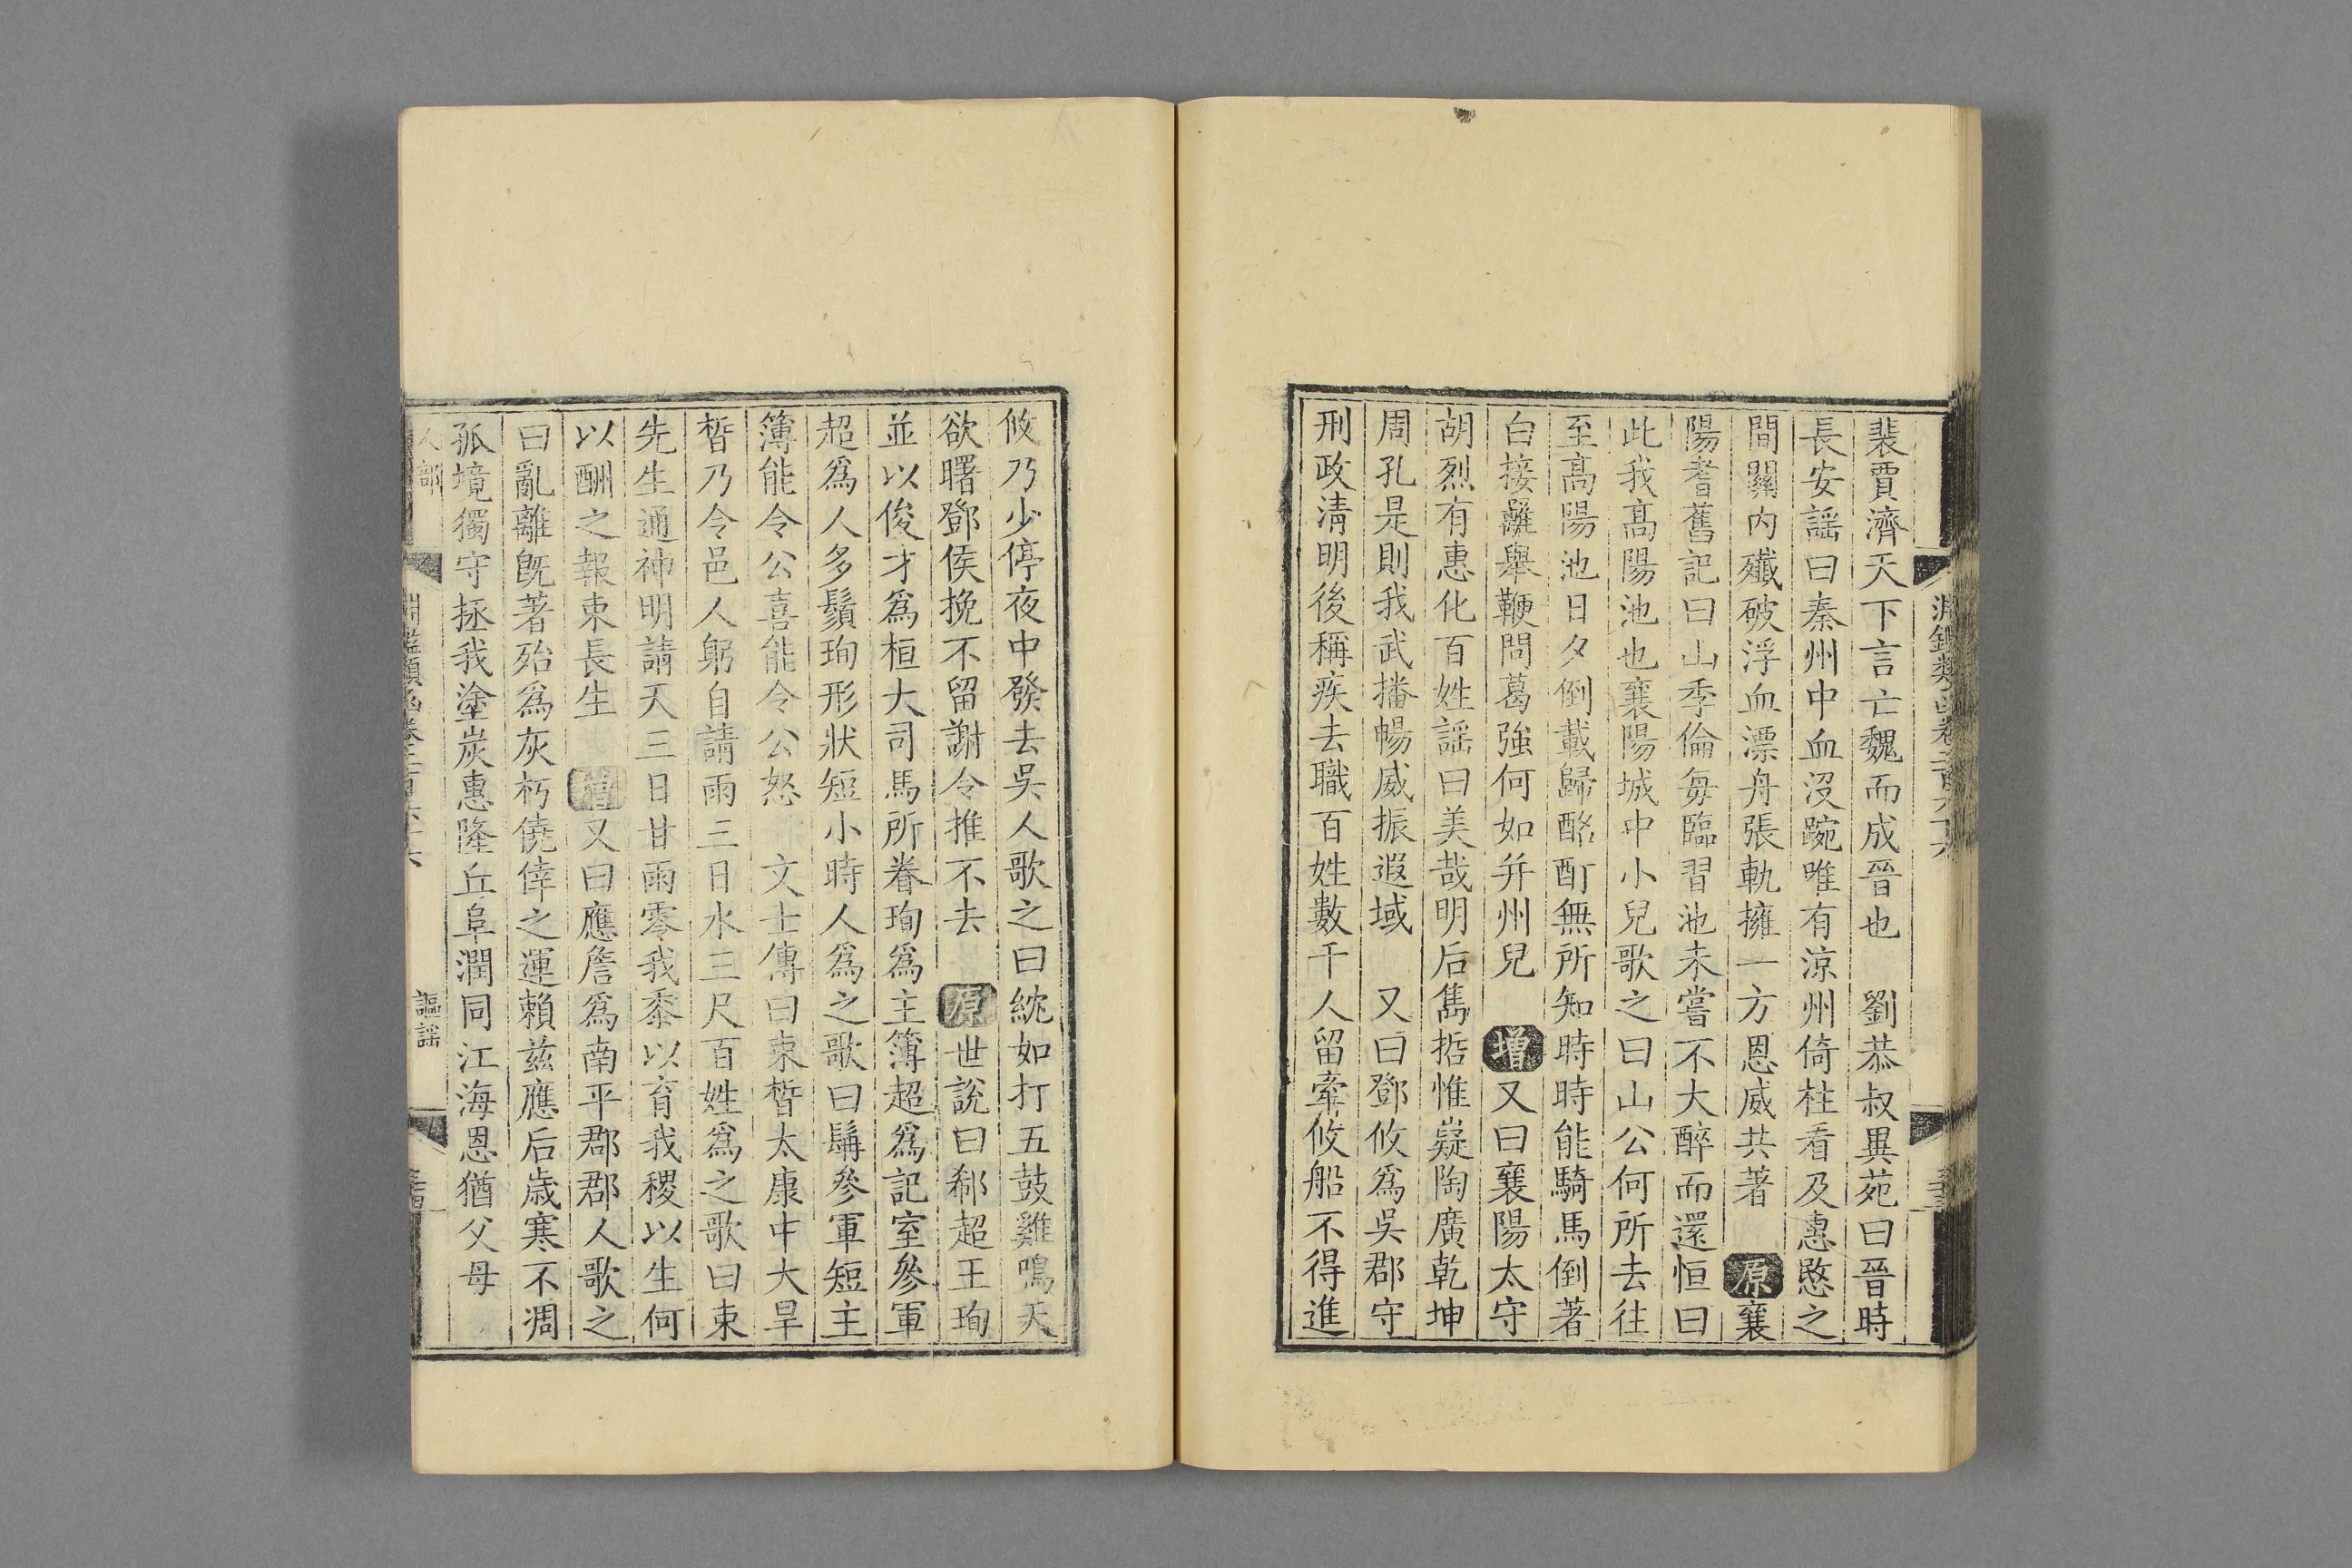 裴賈濟天下言亡魏而成晉也　劉恭叔異苑曰晉時
長安謡曰秦州中血沒踠唯有涼州倚柱看及惠愍之
間關內殲破浮血漂舟張軌擁一方恩威共著　原襄
陽耆舊記曰山季倫每臨習池未嘗不大醉而還恒曰
此我高陽池也襄陽城中小兒歌之曰山公何所去往
至高陽池日夕倒載歸酩酊無所知時時能騎馬倒著
白接䍦舉鞭問葛強何如并州兒　增又曰襄陽太守
胡烈有惠化百姓謡曰美哉明后雋哲惟嶷陶廣乾坤
周孔是則我武播暢威振遐域　又曰鄧攸爲吳郡守
刑政清明後稱疾去職百姓數千人留牽攸船不得進
攸乃少停夜中發去吳人歌之曰紞如打五鼓雞鳴天
欲曙鄧侯挽不留謝令推不去　原世說曰郗超王珣
並以俊才爲桓大司馬所眷珣爲主簿超爲記室參軍
超爲人多鬚珣形狀短小時人爲之歌曰髯參軍短主
簿能令公喜能令公怒　文士傳曰束皙太康中大旱
皙乃令邑人躬自請雨三日水三尺百姓爲之歌曰束
先生通神明請天三日甘雨零我黍以育我稷以生何
以酬之報束長生　增又曰應詹爲南平郡郡人歌之
曰亂離旣著殆爲灰朽僥倖之運賴茲應后歲寒不凋
孤境獨守拯我塗炭惠隆丘阜潤同江海恩猶父母
人部
謳謡